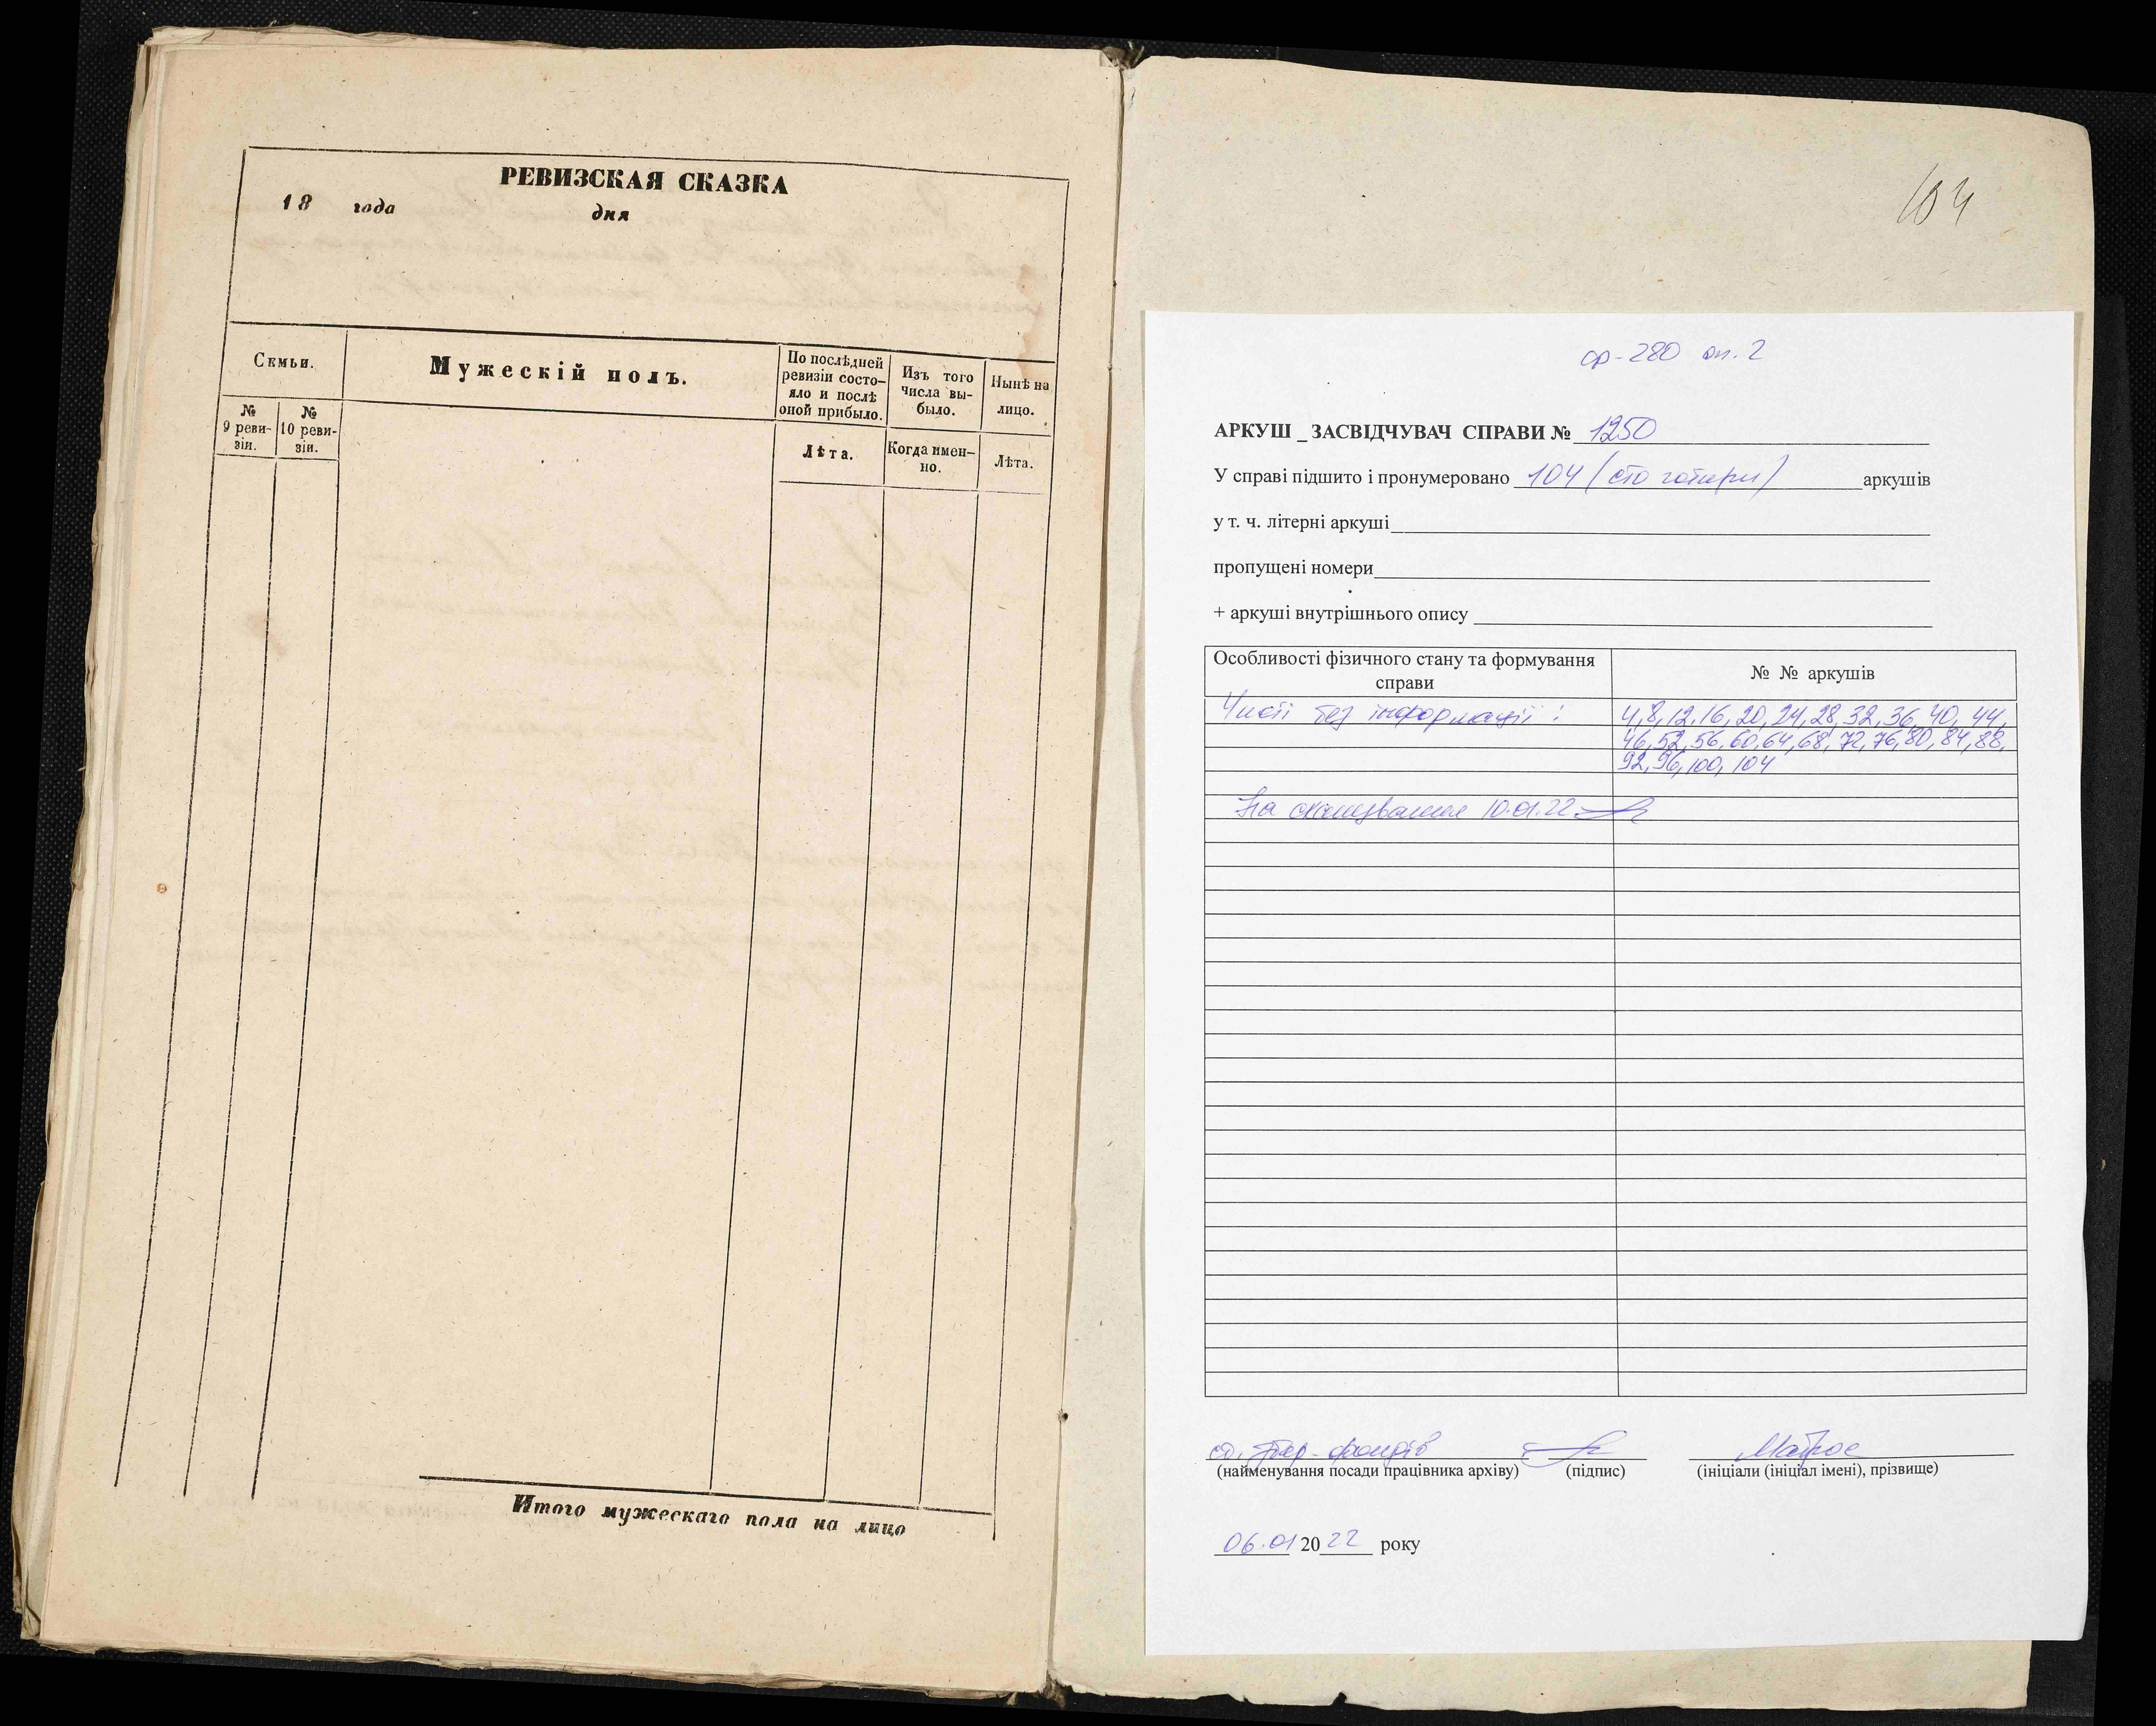 РЕВИЗСКАЯ СКАЗКА
18 года дня
Семьи.
Мужескій полъ.
По послѣдней ревизіи состо-
яло и послѣ
оной прибыло.
Изъ того
числа вы-
было.
Нынѣ на
лицо.
№
9 реви-
зіи.
№
10 реви-
зіи.
Лѣта.
Когда имен-
но.
Лѣта.
Итого мужескаго пола на лицо
104
ф-280 оп. 2
АРКУШ _ ЗАСВІДЧУВАЧ СПРАВИ № 1250
У справі підшито і пронумеровано 104 (сто чотири) аркушів
у т. ч. літерні аркуші
пропущені номери
+ аркуші внутрішнього опису
Особливості фізичного стану та формування
справи
№ № аркушів
Чисті без інформації: 4, 8, 12, 16, 20, 24, 28, 32, 36, 40, 44,
46, 52, 56, 60, 64, 68, 72, 76, 80, 84, 88,
92, 96, 100, 104
На сканування 10.01.22
фондів
Матрос
(найменування посади працівника архіву) (підпис) (ініціали (ініціал імені), прізвище)
06.01 2022 року